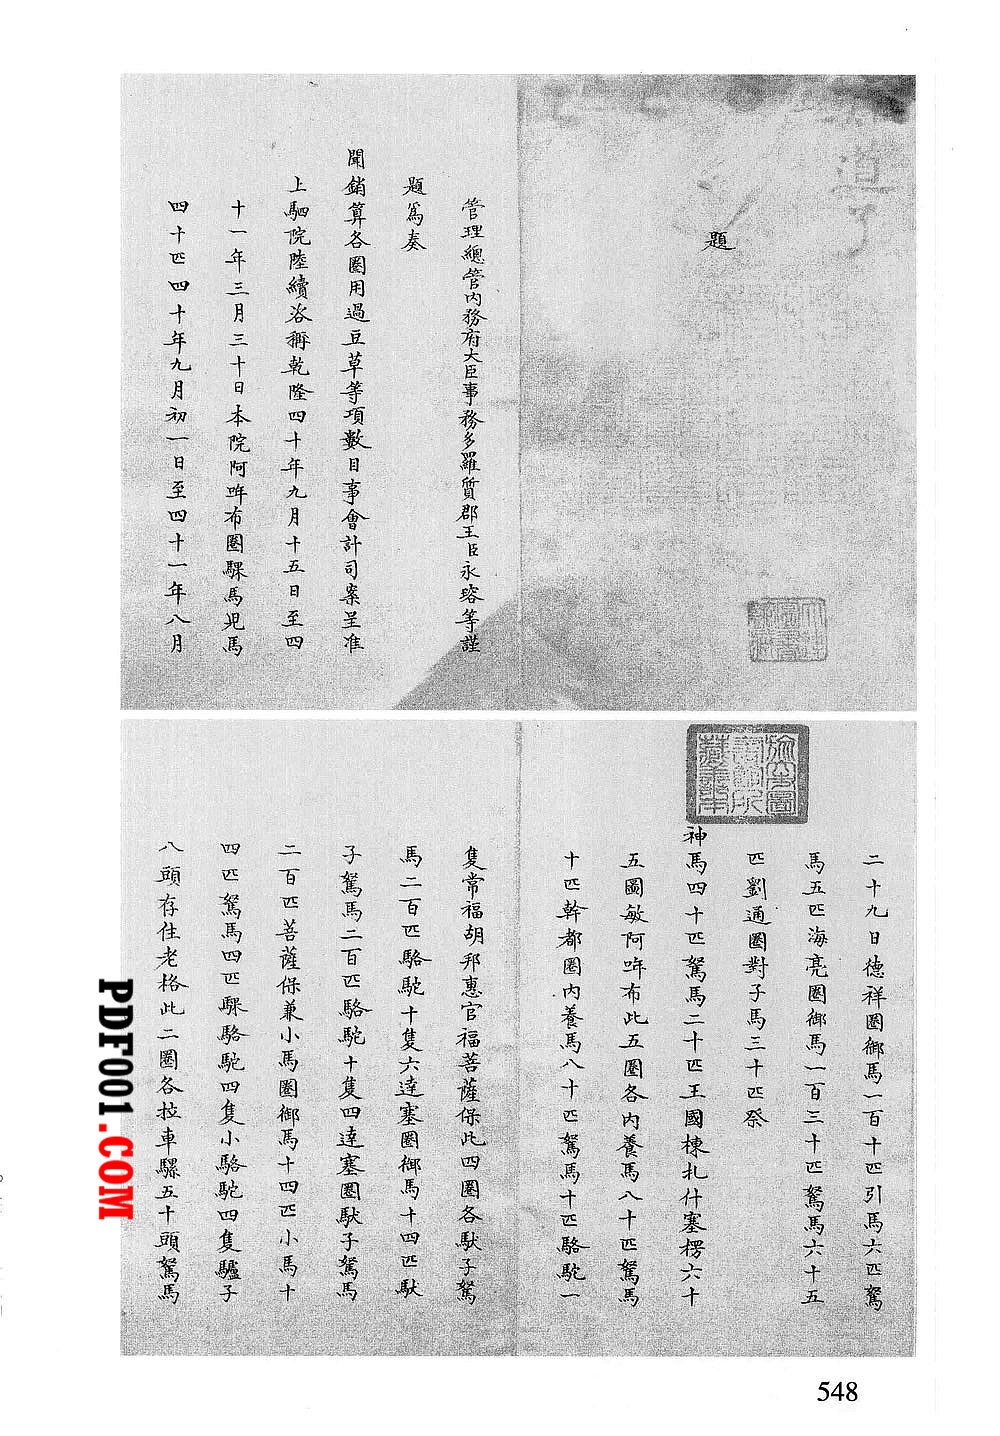 題
管理總管內務府大臣事務多羅質郡王臣永瑢等謹
題為奏
聞銷算各圈用過豆草等項數目事會計司案呈准
上駟院陸續咨稱乾隆四十年九月十五日至四
十一年三月三十日本院阿哖布圈騍馬兒馬
四十匹四十年九月初一日至四十一年八月
二十九日德祥圈御馬一百十匹引馬六匹駑
馬五匹海亮圈御馬一百三十匹駑馬六十五
匹劉通圈對子馬三十匹祭
神馬四十匹駑馬二十匹王國棟札什塞楞六十
五圖敏阿哖布此五圈各內養馬八十匹駑馬
十匹幹都圈內養馬八十匹駑馬十匹駱駝一
隻常福胡邦惠官福菩薩保此四圈各馱子駑
馬二百匹駱駝十隻六達塞圈御馬十四匹馱
子駑馬二百匹駱駝十隻四達塞圈馱子駑馬
二百匹菩薩保兼小馬圈御馬十四匹小馬十
四匹駑馬四匹騍駱駝四隻小駱駝四隻驢子
八頭存住老格此二圈各拉車騾五十頭駑馬
PDF001.COM
548